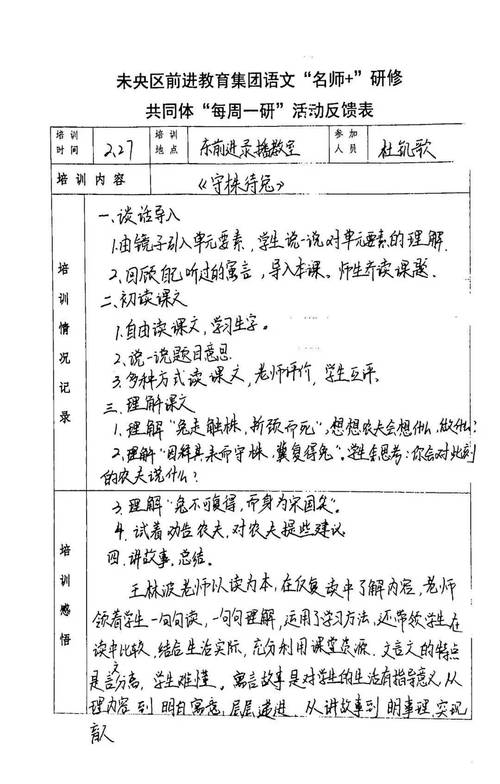 未央区前进教育集团语文“名师+”研修
共同体“每周一研”活动反馈表
培训时间 2.27 培训地点 东前进录播教室 参加人员 杜凯歌
培训内容 《守株待兔》
培训情况记录
一、谈话导入
1.由镜子引入单元要素,学生说一说对单元要素的理解.
2.回顾自己听过的寓言,导入本课。师生齐读课题.
二、初读课文
1.自由读课文,学习生字。
2.说一说题目意思.
3.多种方式读课文,老师评价,学生互评。
三.理解课文
1.理解“兔走触株,折颈而死”,想想农夫会想什么,做什么?
2.理解“因释其耒而守株,冀复得兔”。学生思考:你会对此刻
的农夫说什么?
3.理解“兔不可复得,而身为宋国笑”。
4.试着劝告农夫,对农夫提些建议
四.讲故事,总结。
培训感悟
王林波老师以读为本,在反复读中了解内容,老师
领着学生一句句读,一句句理解,运用了学习方法,还带领学生在
读中比较,结合生活实际,充分利用课堂资源.文言文的特点
是言文分离,学生难懂。寓言故事是对学生的生活有指导意义,从
理内容到明白寓意,层层递进,从讲故事到明事理,实现
育人